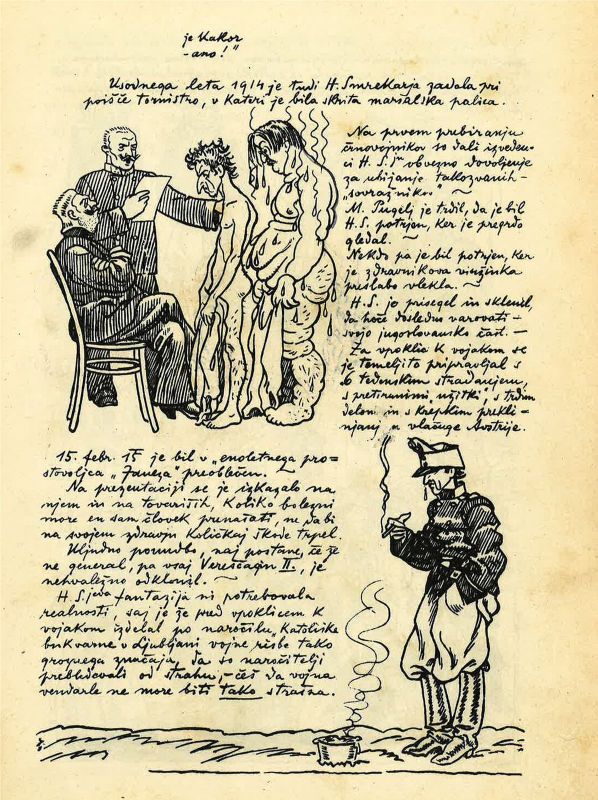 je kakor
-ano!"
Usodnega leta 1914 je tudi H. Smrekarja zadela pri
poišče tornistro, v kateri je bila skrita maršalska palica.
Na prvem prebiranju
črnovojnikov so dali izveden-
ci H. S.ju obvezno dovoljenje
za ubijanje takozvanih
"sovražnikov" ~
M. Pugelj je trdil, da je bil
H.S. potrjen, ker je pregrdo
gledal. ~
Nekdo pa je bil potrjen, ker
je zdravnikova viržinka
preslabo vlekla. ~
H.S. je prisegel in sklenil,
da hoče dosledno varovati
svojo jugoslovansko čast. —
Za vpoklic k vojakom se
je temeljito pripravljal s
6 tedenskim stradanjem,
s pretiranimi "užitki", s trdim
delom in s krepkim prekli-
njanjem vlačuge Avstrije.
15. febr. 15 je bil v "enoletnega pro=
stovoljca "Janeza" preoblečen.
Na prezentaciji se je izkazalo na
njem in na tovariših, koliko bolezni
more en sam človek prenašati, ne da bi
na svojem zdravju količkaj škode trpel.
Vljudno ponudbo, naj postane, če že
ne general, pa vsaj Vereščagin II., je
nehvaležno odklonil. ~
H. S.jeva fantazija ni potrebovala
realnosti, saj je že pred vpoklicem k
vojakom izdelal po naročilu "Katoliške
bukvarne v Ljubljani vojne risbe tako
groznega značaja, da so naročitelji
prebledevali od strahu, — češ da vojna
vendarle ne more biti tako strašna.